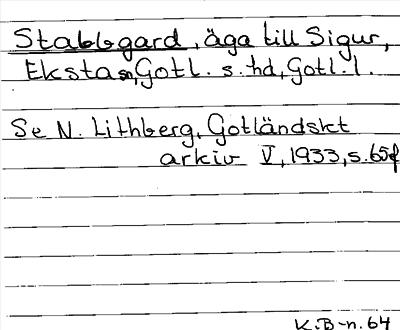 Stabbgard, äga till Sigur,
Eksta sn, Gotl. s. hd, Gotl. l.
Se N. Lithberg, Gotländskt
arkiv V, 1933, s. 65f
K.B-n. 64